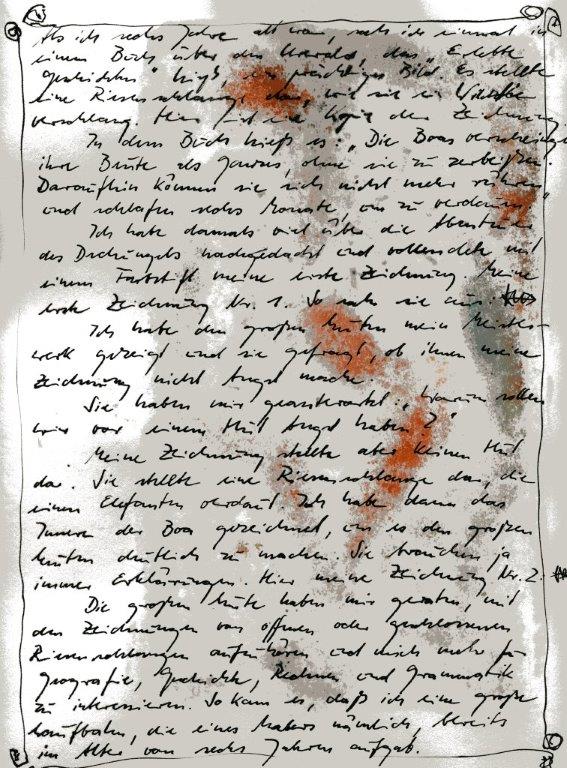 Als ich sechs Jahre alt war, sah ich einmal in
einem Buch über den Urwald, das „Erlebte
Geschichten" hieß, ein prächtiges Bild. Es stellte
eine Riesenschlange dar, wie sie ein Wildtier
verschlang. Hier ist eine Kopie der Zeichnung.
In dem Buch hieß es: „Die Boas verschlingen
ihre Beute als Ganzes, ohne sie zu zerbeißen.
Daraufhin können sie sich nicht mehr rühren
und schlafen sechs Monate, um zu verdauen."
Ich habe damals viel über die Abenteuer
des Dschungels nachgedacht und vollendete mit
einem Farbstift meine erste Zeichnung. Meine
erste Zeichnung Nr. 1. So sah sie aus.
Ich habe den großen Leuten mein Meister-
werk gezeigt und sie gefragt, ob ihnen meine
Zeichnung nicht Angst mache.
Sie haben mir geantwortet: „Warum sollen
wir vor einem Hut Angst haben?"
Meine Zeichnung stellte aber keinen Hut
dar. Sie stellte eine Riesenschlange dar, die
einen Elefanten verdaut. Ich habe dann das
Innere der Boa gezeichnet, um es den großen
Leuten deutlich zu machen. Sie brauchen ja
immer Erklärungen. Hier meine Zeichnung Nr. 2.
Die großen Leute haben mir geraten, mit
den Zeichnungen von offenen oder geschlossenen
Riesenschlangen aufzuhören und mich mehr für
Geografie, Geschichte, Rechnen und Grammatik
zu interessieren. So kam es, daß ich eine große
Laufbahn, die eines Malers nämlich, bereits
im Alter von sechs Jahren aufgab.